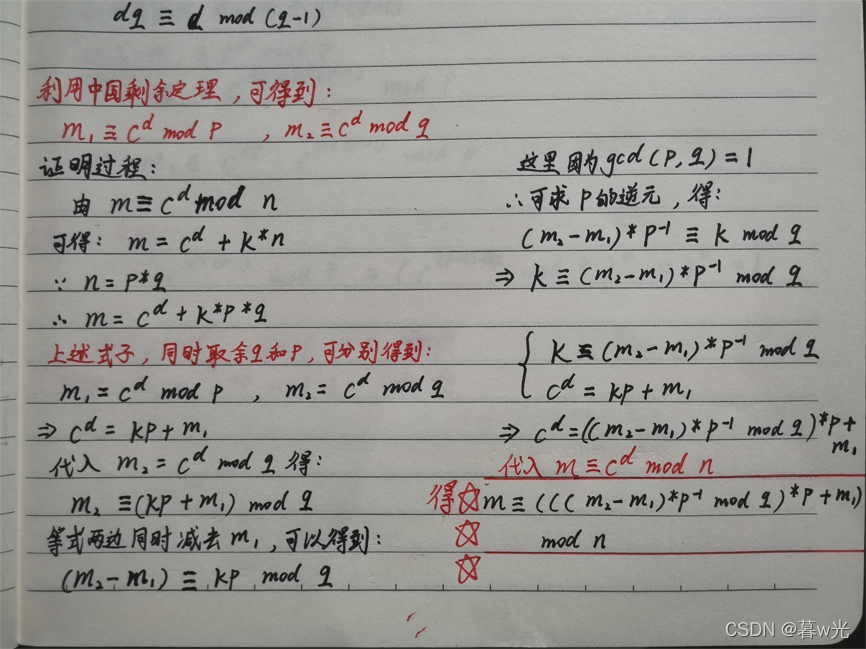 dq ≡ d mod (q-1)
利用中国剩余定理，可得到：
m₁ ≡ c^d mod p ，m₂ ≡ c^d mod q
证明过程：
由 m ≡ c^d mod n
可得： m = c^d + k*n
∵ n = p*q
∴ m = c^d + k*p*q
上述式子，同时取余q和p，可分别得到：
m₁ = c^d mod p ， m₂ = c^d mod q
⇒ c^d = kp + m₁
代入 m₂ = c^d mod q 得：
m₂ ≡ (kp + m₁) mod q
等式两边同时减去 m₁，可以得到：
(m₂ - m₁) ≡ kp mod q
这里因为 gcd(p, q) = 1
∴ 可求 p 的逆元，得：
(m₂ - m₁) * p⁻¹ ≡ k mod q
⇒ k ≡ (m₂ - m₁) * p⁻¹ mod q
{ k ≡ (m₂ - m₁) * p⁻¹ mod q
c^d = kp + m₁
⇒ c^d = ((m₂ - m₁) * p⁻¹ mod q) * p +
m₁
代入 m ≡ c^d mod n
得☆ m ≡ (((m₂ - m₁) * p⁻¹ mod q) * p + m₁)
☆ mod n
☆
CSDN @暮w光